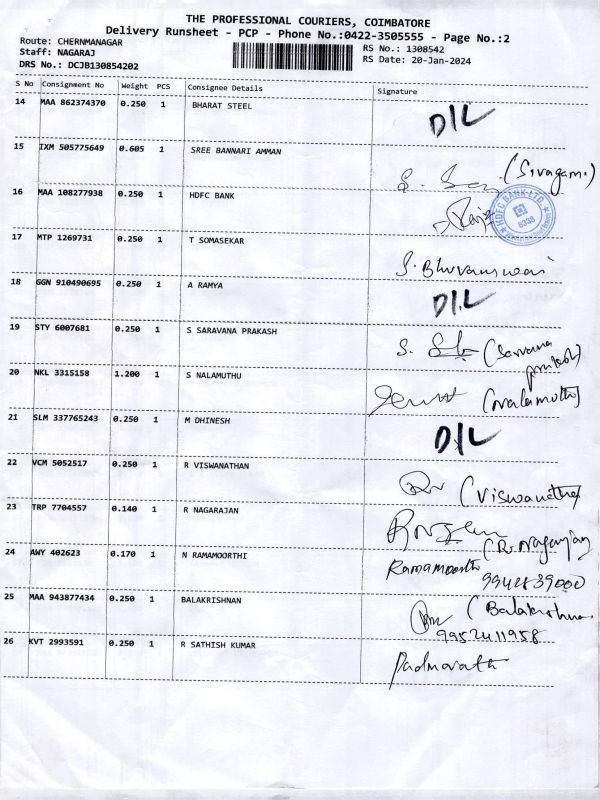 THE PROFESSIONAL COURIERS, COIMBATORE
Delivery Runsheet - PCP - Phone No.:0422-3505555 - Page No.:2
Route: CHERNMANAGAR RS No.: 1308542
Staff: NAGARAJ RS Date: 20-Jan-2024
DRS No.: DCJB130854202
S No Consignment No Weight PCS Consignee Details Signature
14 MAA 862374370 0.250 1 BHARAT STEEL D/L
15 IXM 505775649 0.605 1 SREE BANNARI AMMAN (Sivagami)
16 MAA 108277938 0.250 1 HDFC BANK HDFC BANK LTD. 6338
17 MTP 1269731 0.250 1 T SOMASEKAR S. Bhuvaneswari
18 GGN 910490695 0.250 1 A RAMYA D/L
19 STY 6007681 0.250 1 S SARAVANA PRAKASH S. (Saravana
prakash)
20 NKL 3315158 1.200 1 S NALAMUTHU (Nalamuthu)
21 SLM 337765243 0.250 1 M DHINESH D/L
22 VCM 5052517 0.250 1 R VISWANATHAN (Viswanathan
23 TRP 7704557 0.140 1 R NAGARAJAN (R. Nagarajan
24 AWY 402623 0.170 1 N RAMAMOORTHI Ramamoorthi
25 MAA 943877434 0.250 1 BALAKRISHNAN (Balakrishnan
9952411958
26 KVT 2993591 0.250 1 R SATHISH KUMAR Padmavathi